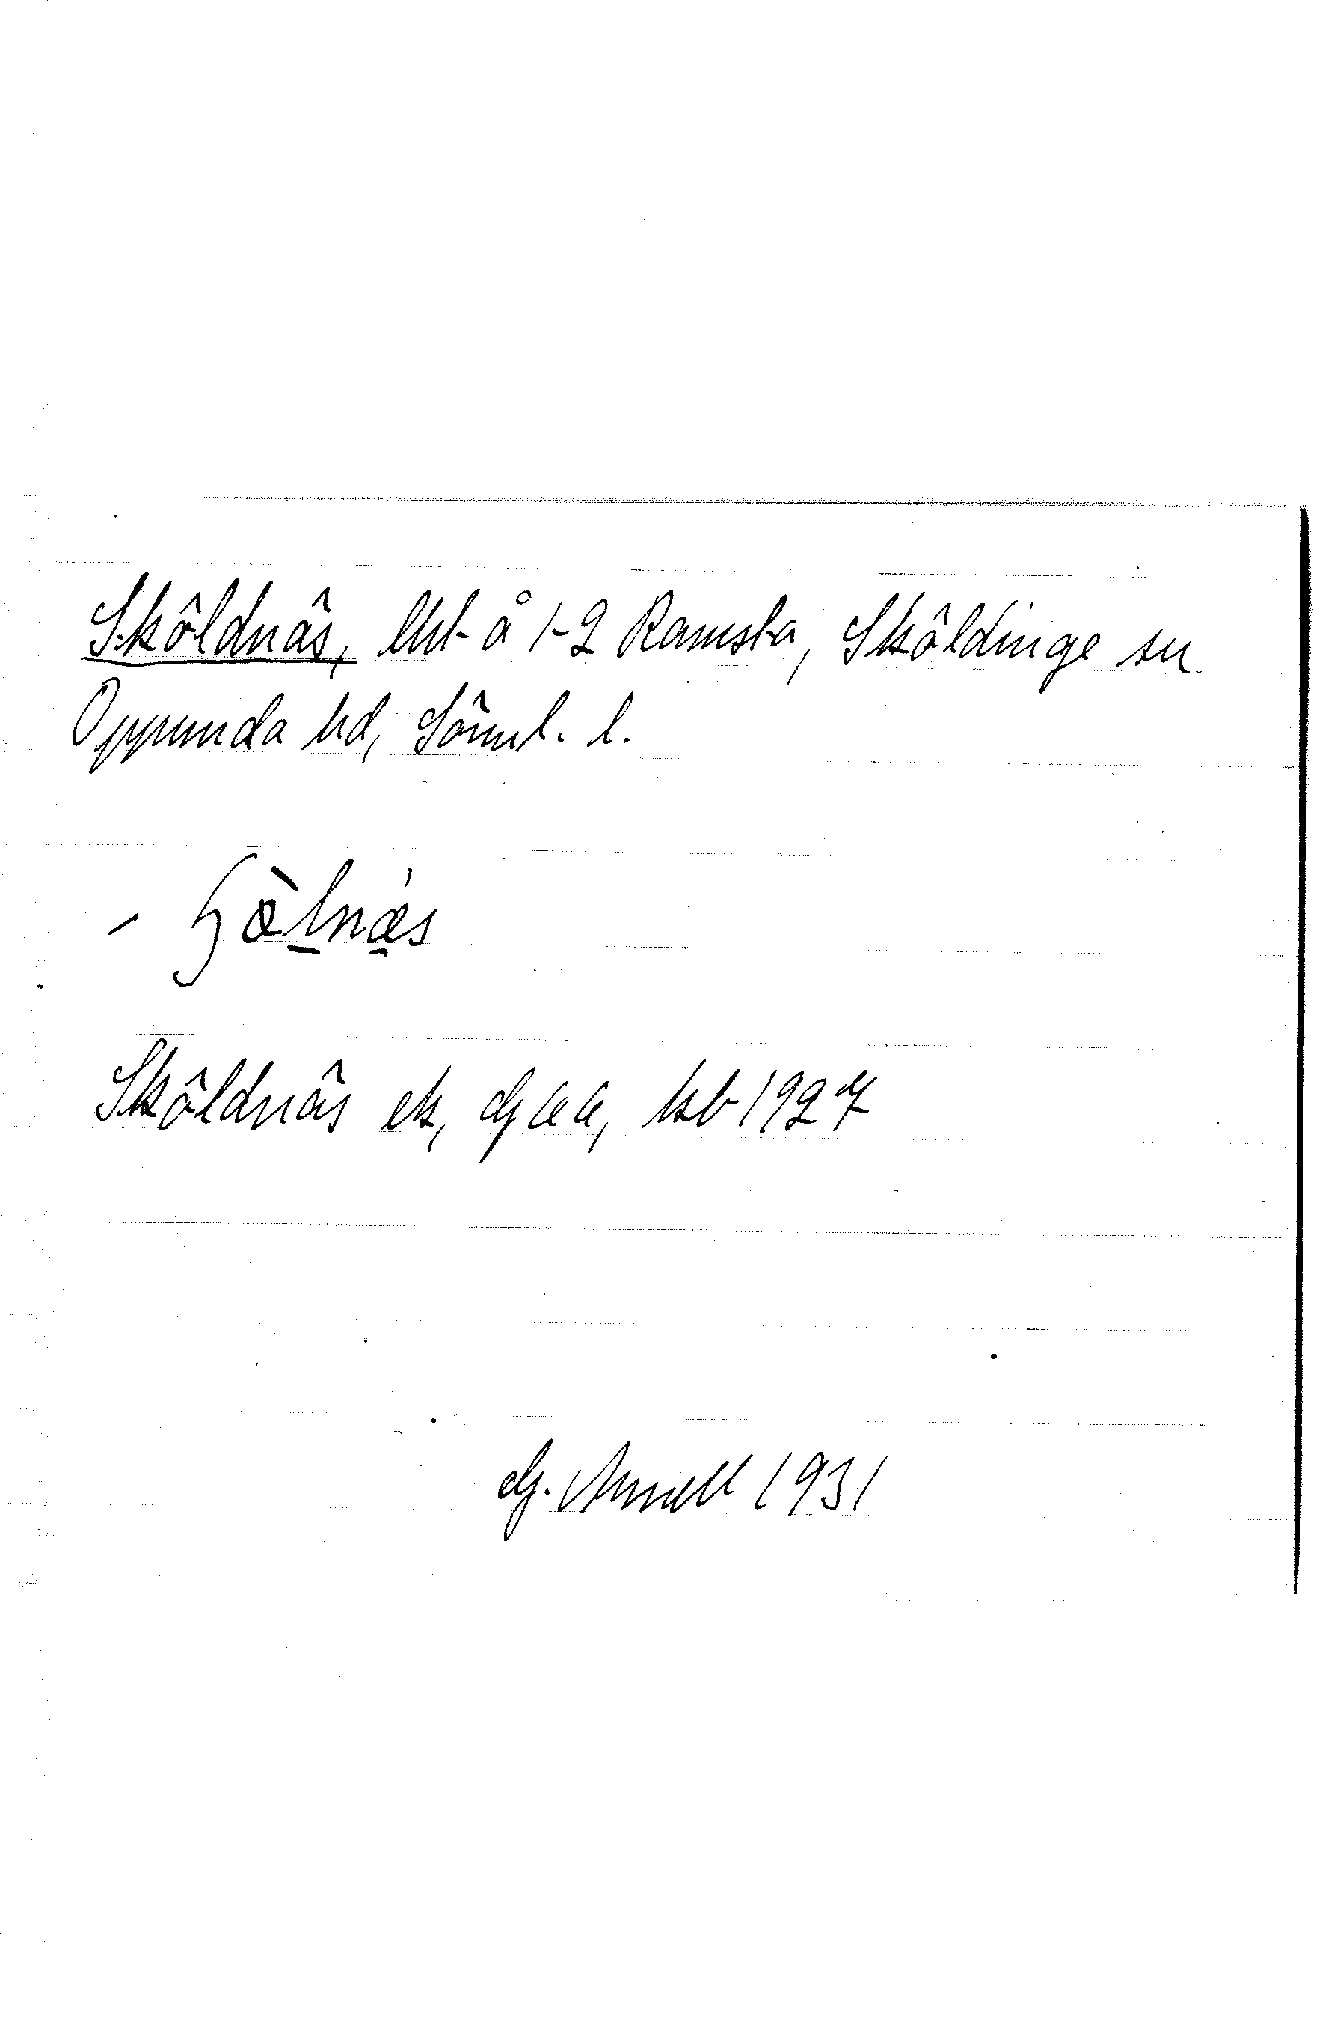 Sköldnäs, lht å 1-2 Ramsta, Sköldinge sn
Oppunda hd, Söml. l.
Sköldnäs ek, GEK, kb 1927
G. Annell 1931